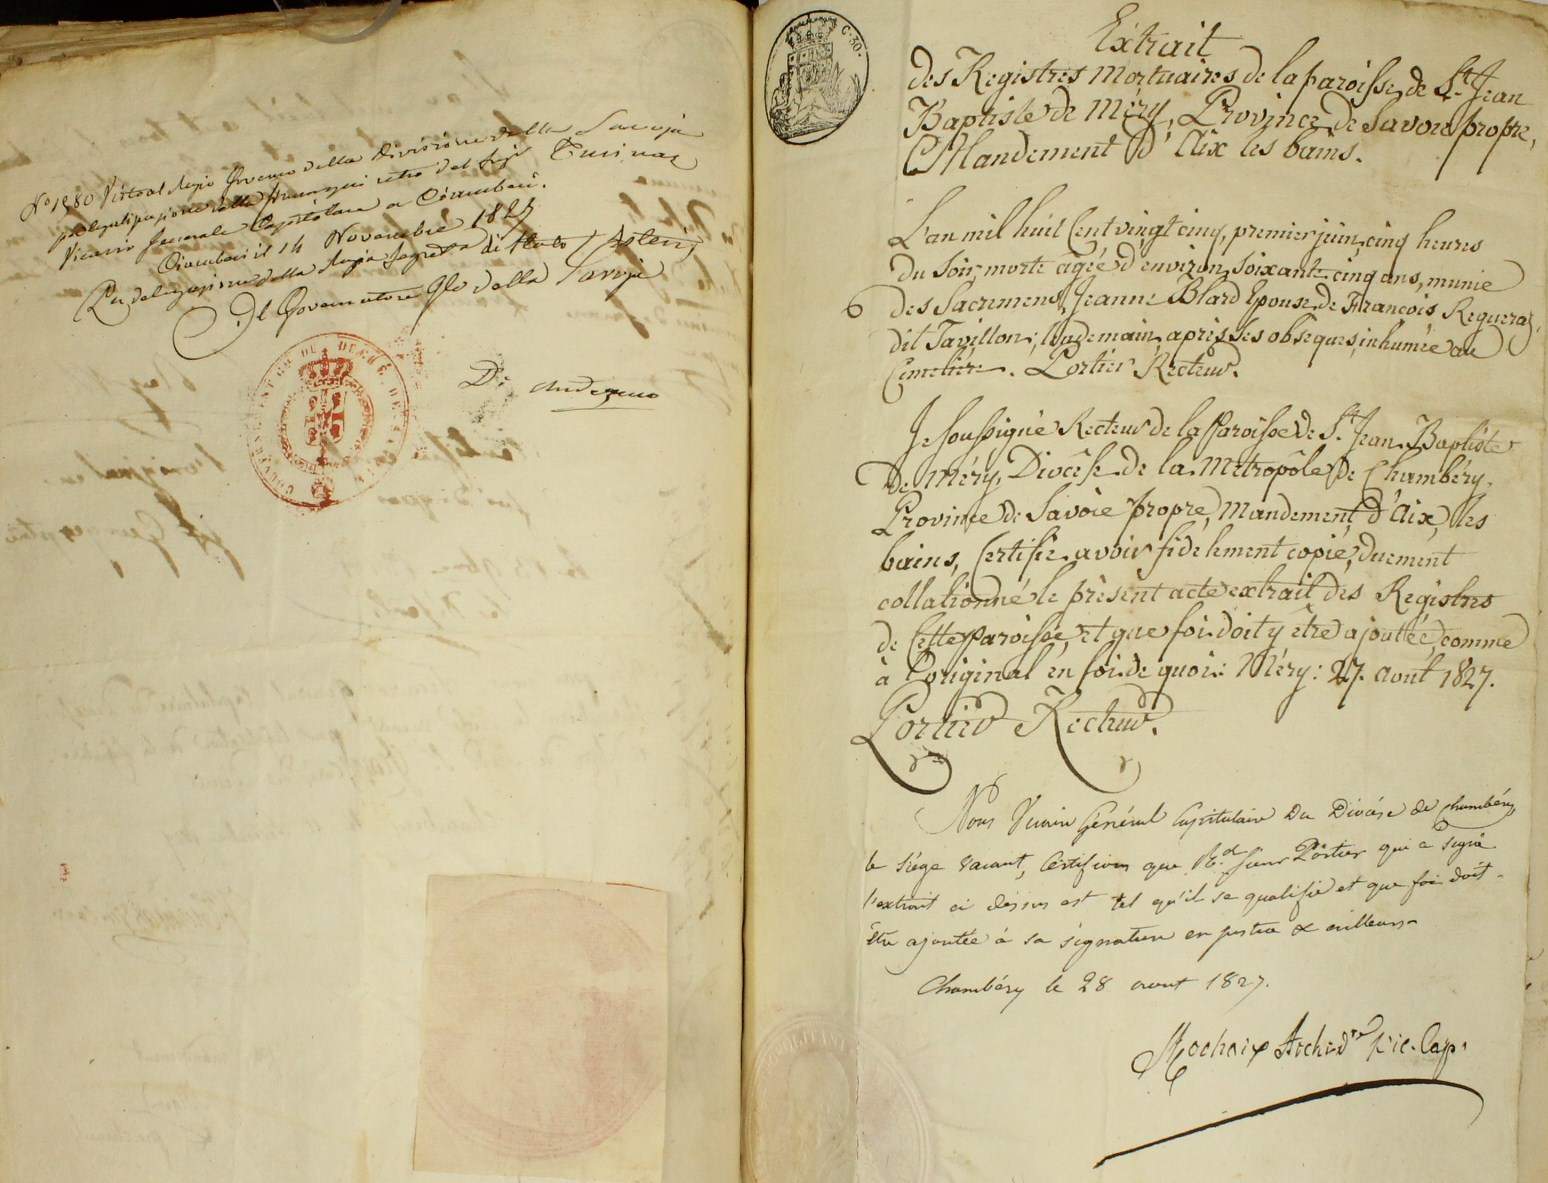 No 1980 Visto al Regio Governo della Divisione della Savoja
per legalizzazione della firma qui retro del Sigr
Vicario Generale Capitolare a Ciamberì.
Ciamberì il 14 Novembre 1827
Per delegazione della Regia Segria di Stato /Esteri/
Il Governatore Gle della Savoja
Di Andezeno
C. 30.
Extrait
des Registres mortuaires de la paroisse de St Jean
Baptiste de Méry, Province de Savoie propre,
Mandement d'Aix les bains.
L'an mil huit Cent vingt cinq, premier juin, cinq heures
du soir, morte agée d'environ soixante cinq ans, munie
6 des Sacremens, Jeanne Blard Epouse de François Regueraz
dit Tavillon, lendemain, après les obseques, inhumée au
Cimetière. Portier Recteur.
Je soussigné Recteur de la Paroisse de St Jean Baptiste
de Méry, Diocèse de la Métropôle de Chambéry,
Province de Savoie propre, Mandement d'Aix, les
bains, Certifie avoir fidelement copié, duement
collationné le présent acte extrait des Registres
de Cette paroisse, et que foi doit y être ajoutée comme
à l'original en foi de quoi: Méry: 27. aout 1827.
Portier Recteur.
Nous Vicaire Général Capitulaire Du Diocèse de Chambéry,
le siége vacant, Certifions que Rd. Sieur Portier qui a signé
l'extrait ci dessus est tel qu'il se qualifie et que foi doit
être ajoutée à sa signature en justice & ailleurs
Chambéry le 28 aout 1827.
Rochaix Archidre Vic. Cap.